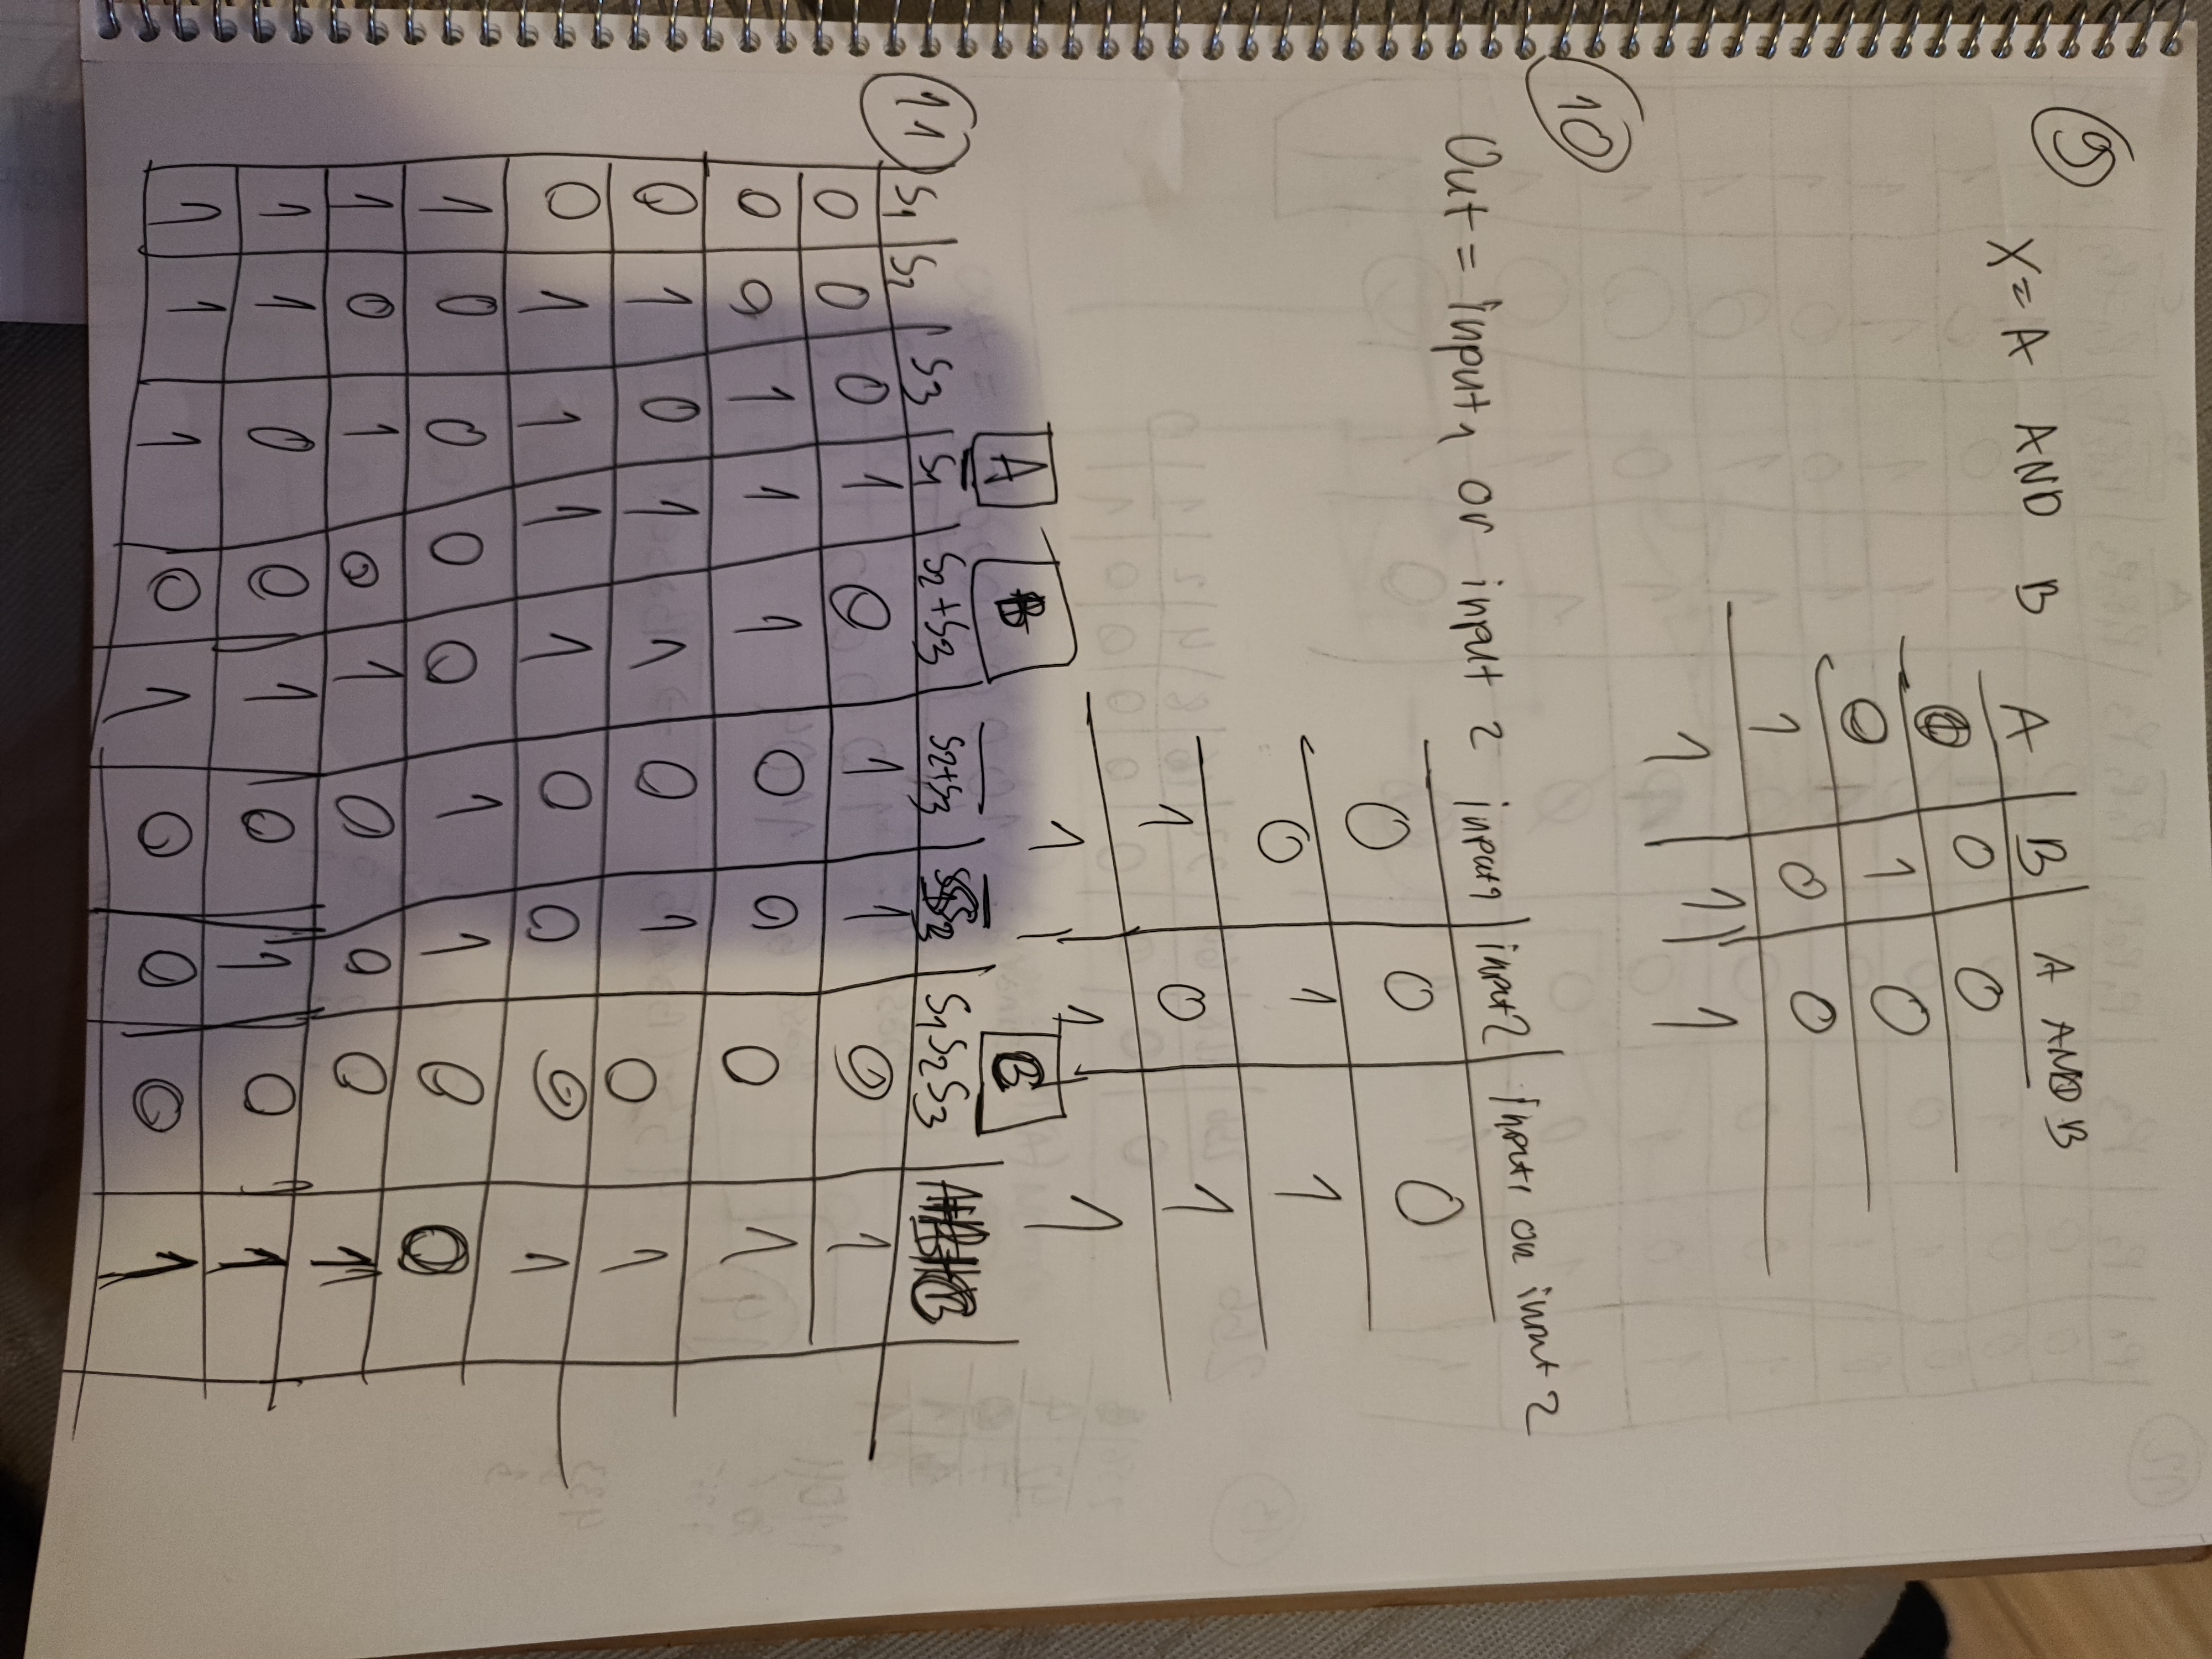 9
X = A AND B
A B A AND B
0 0 0
0 1 0
1 0 0
1 1 1
10
Out = input1 or input 2
input1 input2 input1 or input 2
0 0 0
0 1 1
1 0 1
1 1 1
11
A B
S1 S2 S3 S̅1̅ S2+S3 S̅2̅+̅S̅3̅ S̅3̅ S1S2S̅3̅
0 0 0 1 0 1 1 0 1
0 0 1 1 1 0 0 0 1
0 1 0 1 1 0 1 0 1
0 1 1 1 1 0 0 0 1
1 0 0 0 0 1 1 0 0
1 0 1 0 1 0 0 0 1
1 1 0 0 1 0 1 0 1
1 1 1 0 1 0 0 0 1